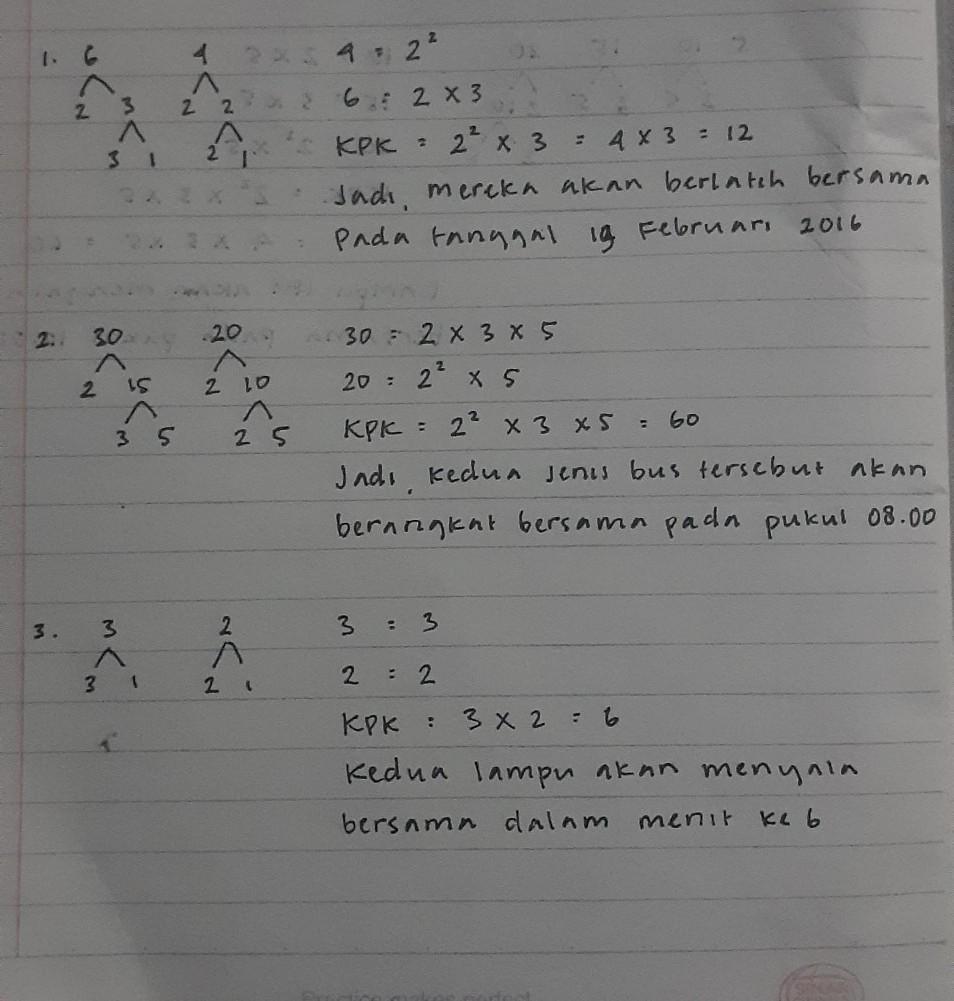 1. 6 4 4 = 2²
2 3 2 2 6 = 2 x 3
3 1 2 1 KPK = 2² x 3 = 4 x 3 = 12
Jadi, mereka akan berlatih bersama
Pada tanggal 19 Februari 2016
2. 30 20 30 = 2 x 3 x 5
2 15 2 10 20 = 2² x 5
3 5 2 5 KPK = 2² x 3 x 5 = 60
Jadi, kedua jenis bus tersebut akan
berangkat bersama pada pukul 08.00
3. 3 2 3 = 3
3 1 2 1 2 = 2
KPK = 3 x 2 = 6
Kedua lampu akan menyala
bersama dalam menit ke 6
Practice makes perfect